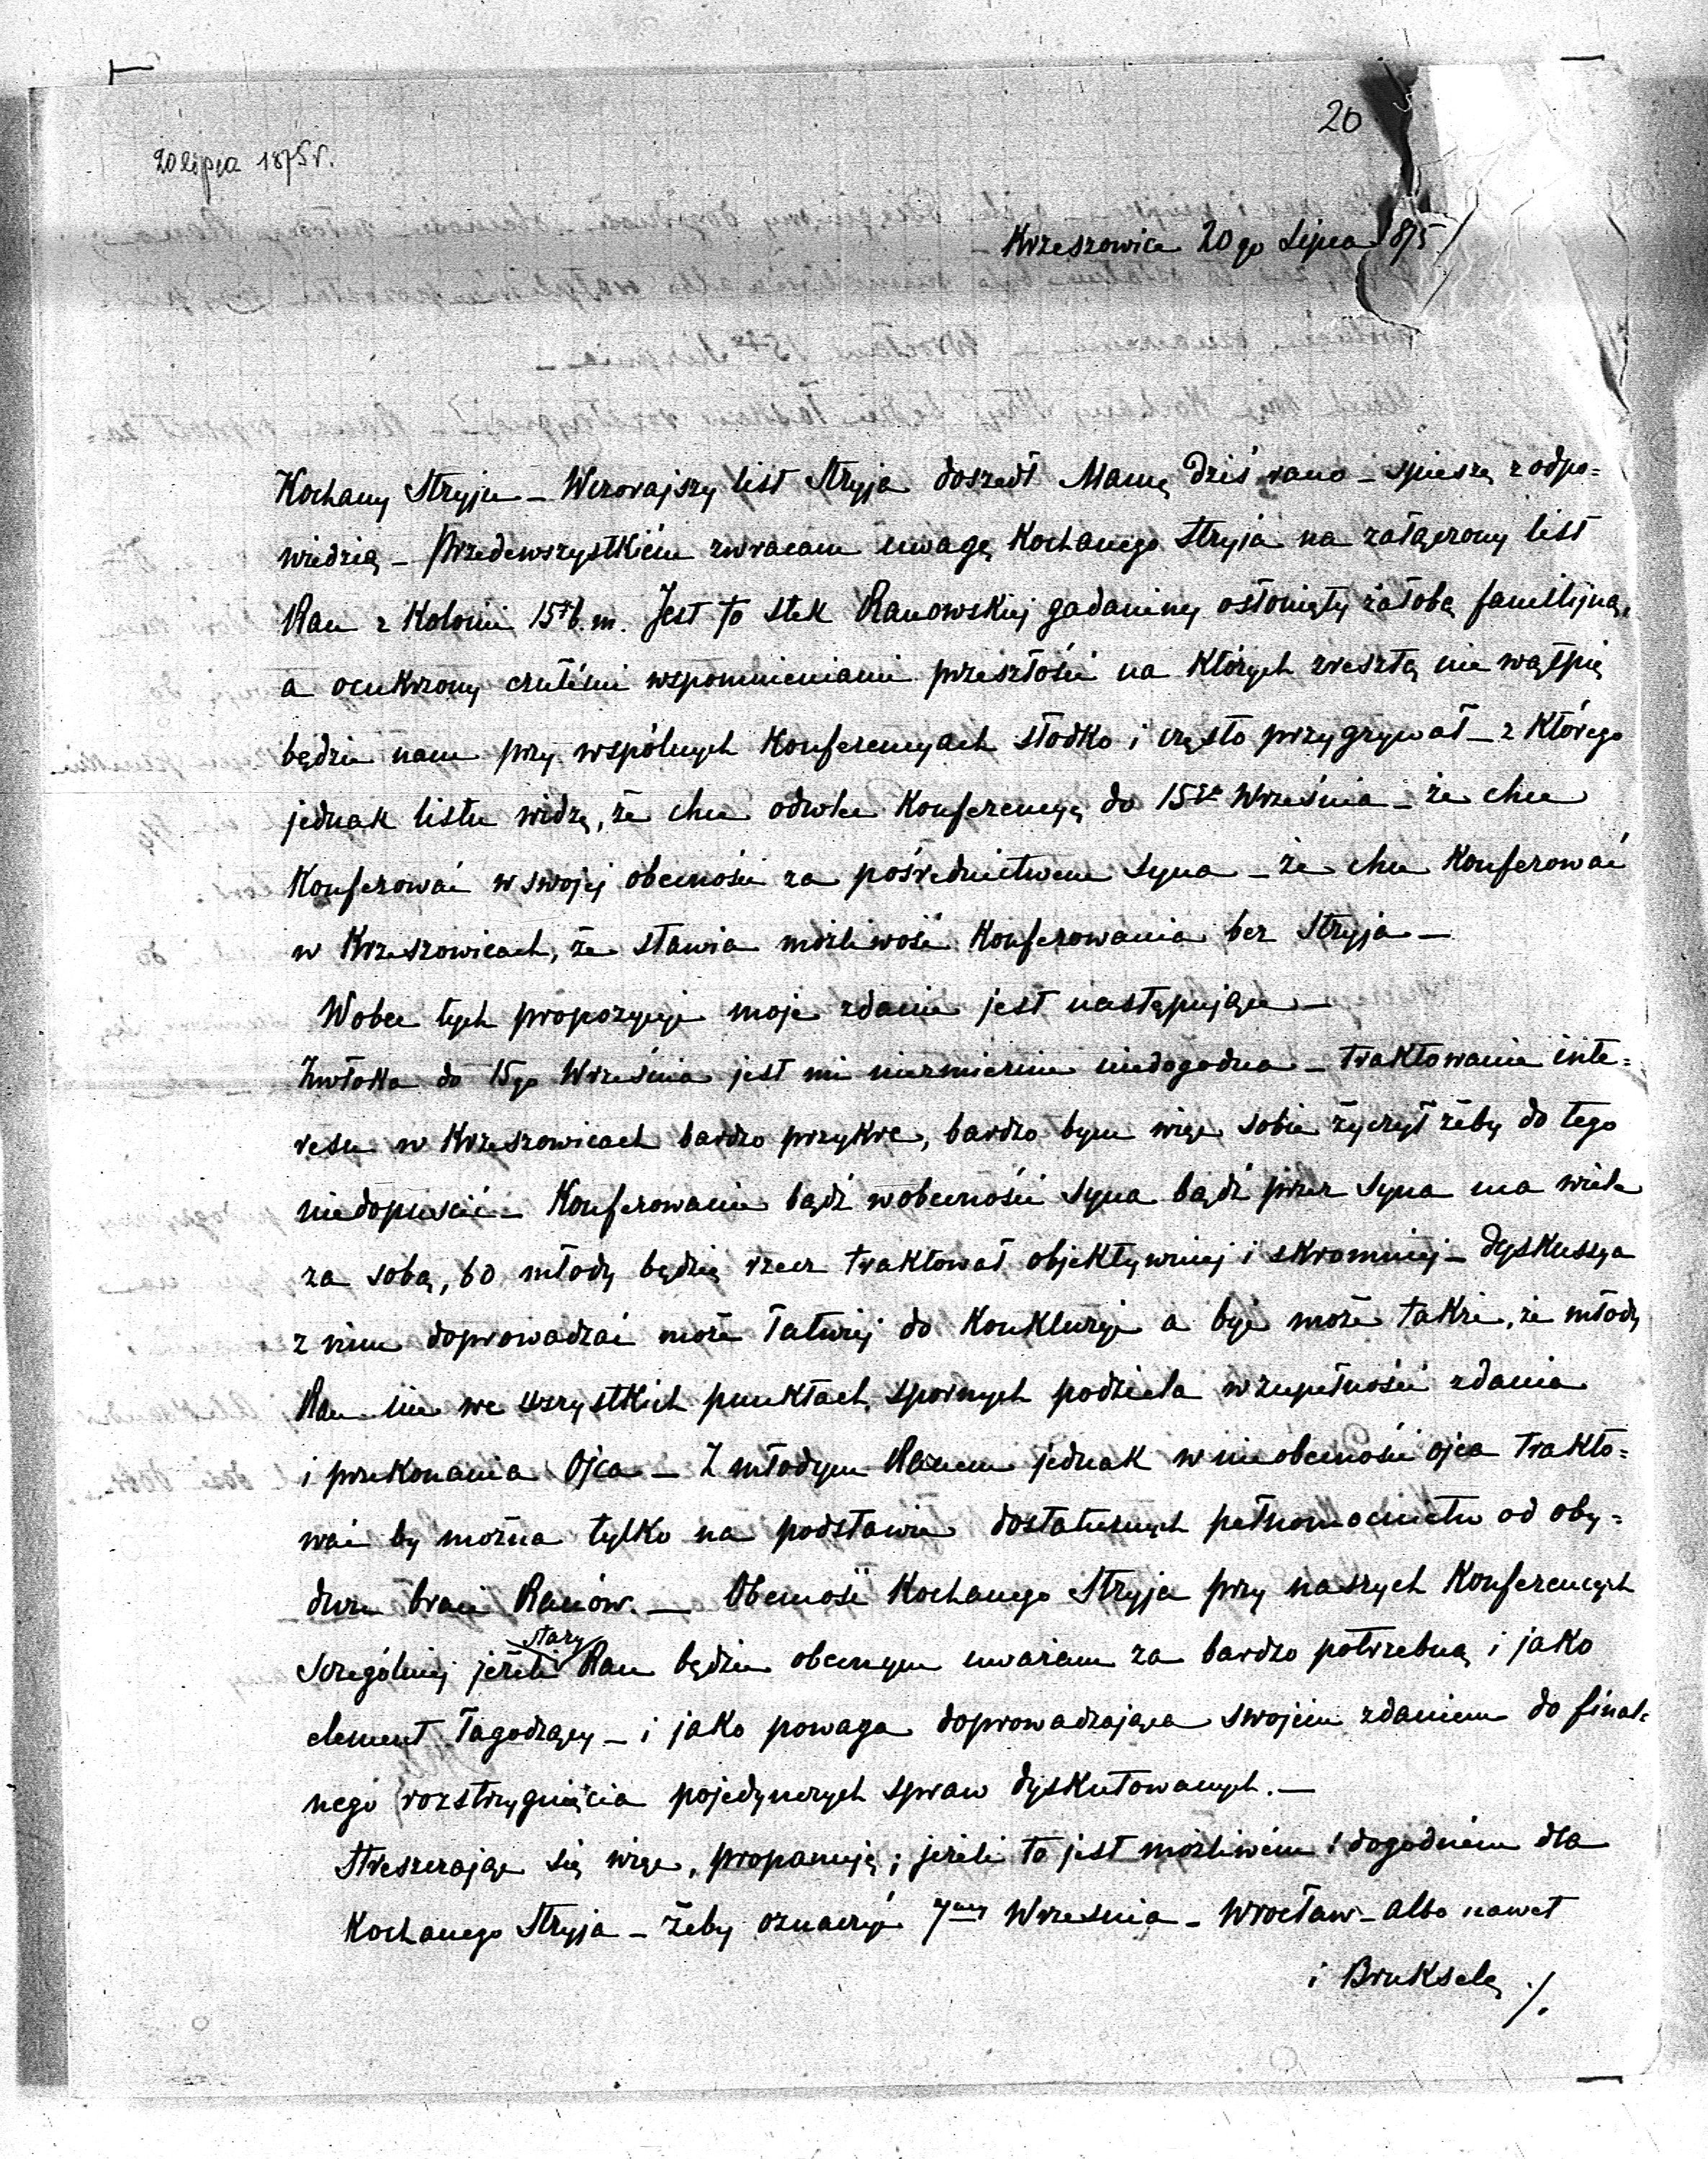 20
20 lipca 1875 r.
Krzeszowice 20go Lipca 1875
Kochany Stryju – Wczorajszy list Stryja doszedł Mamę dziś rano – spieszę z odpo=
wiedzią – Przedewszystkiém zwracam uwagę Kochanego Stryja na załączony list
Rau z Kolonii 15go b. m. Jest to stek Rauowskiej gadaniny osłonięty żałobą familijną,
a ocukrzony czułémi wspomnieniami przeszłości na których zresztą nie wątpię
będzie nam przy wspólnych Konferencyach słodko i często przygrywał – z którego
jednak listu widzę, że chce odwlec Konferencyę do 15go Września – że chce
Konferować w swojéj obecności za pośrednictwem syna – że chce Konferować
w Krzeszowicach, że stawia możliwość Konferowania bez Stryja –
Wobec tych propozycyj moje zdanie jest następujące –
Zwłoka do 15go Września jest mi niezmiernie niedogodna – traktowanie inte=
resu w Krzeszowicach bardzo przykre, bardzo bym więc sobie życzył żeby do tego
niedopuścić – Konferowanie bądź w obecności syna bądź przez syna ma wiele
za sobą, bo młody będzie rzecz traktował objektywniej i skromniej – dyskussya
z nim doprowadzać może łatwiej do Konkluzyj a być może także, że młody
Rau nie we wszystkich punktach spornych podziela w zupełności zdania
i przekonania Ojca – Z młodym Rauem jednak w nieobecności ojca trakto=
wać by można tylko na podstawie dostatecznych pełnomocnictw od oby=
dwu braci Rauów. – Obecność Kochanego Stryja przy naszych Konferencyach
szczególniej jeżeli stary Rau będzie obecnym uważam za bardzo potrzebną i jako
element łagodzący – i jako powaga doprowadzająca swojém zdaniem do final=
nego rozstrzygnięcia pojedynczych spraw dyskutowanych. –
Streszczając się więc, proponuję; jeżeli to jest możliwém i dogodném dla
Kochanego Stryja – żeby oznaczyć 7my Września – Wrocław – albo nawet
i Brukselę ./.